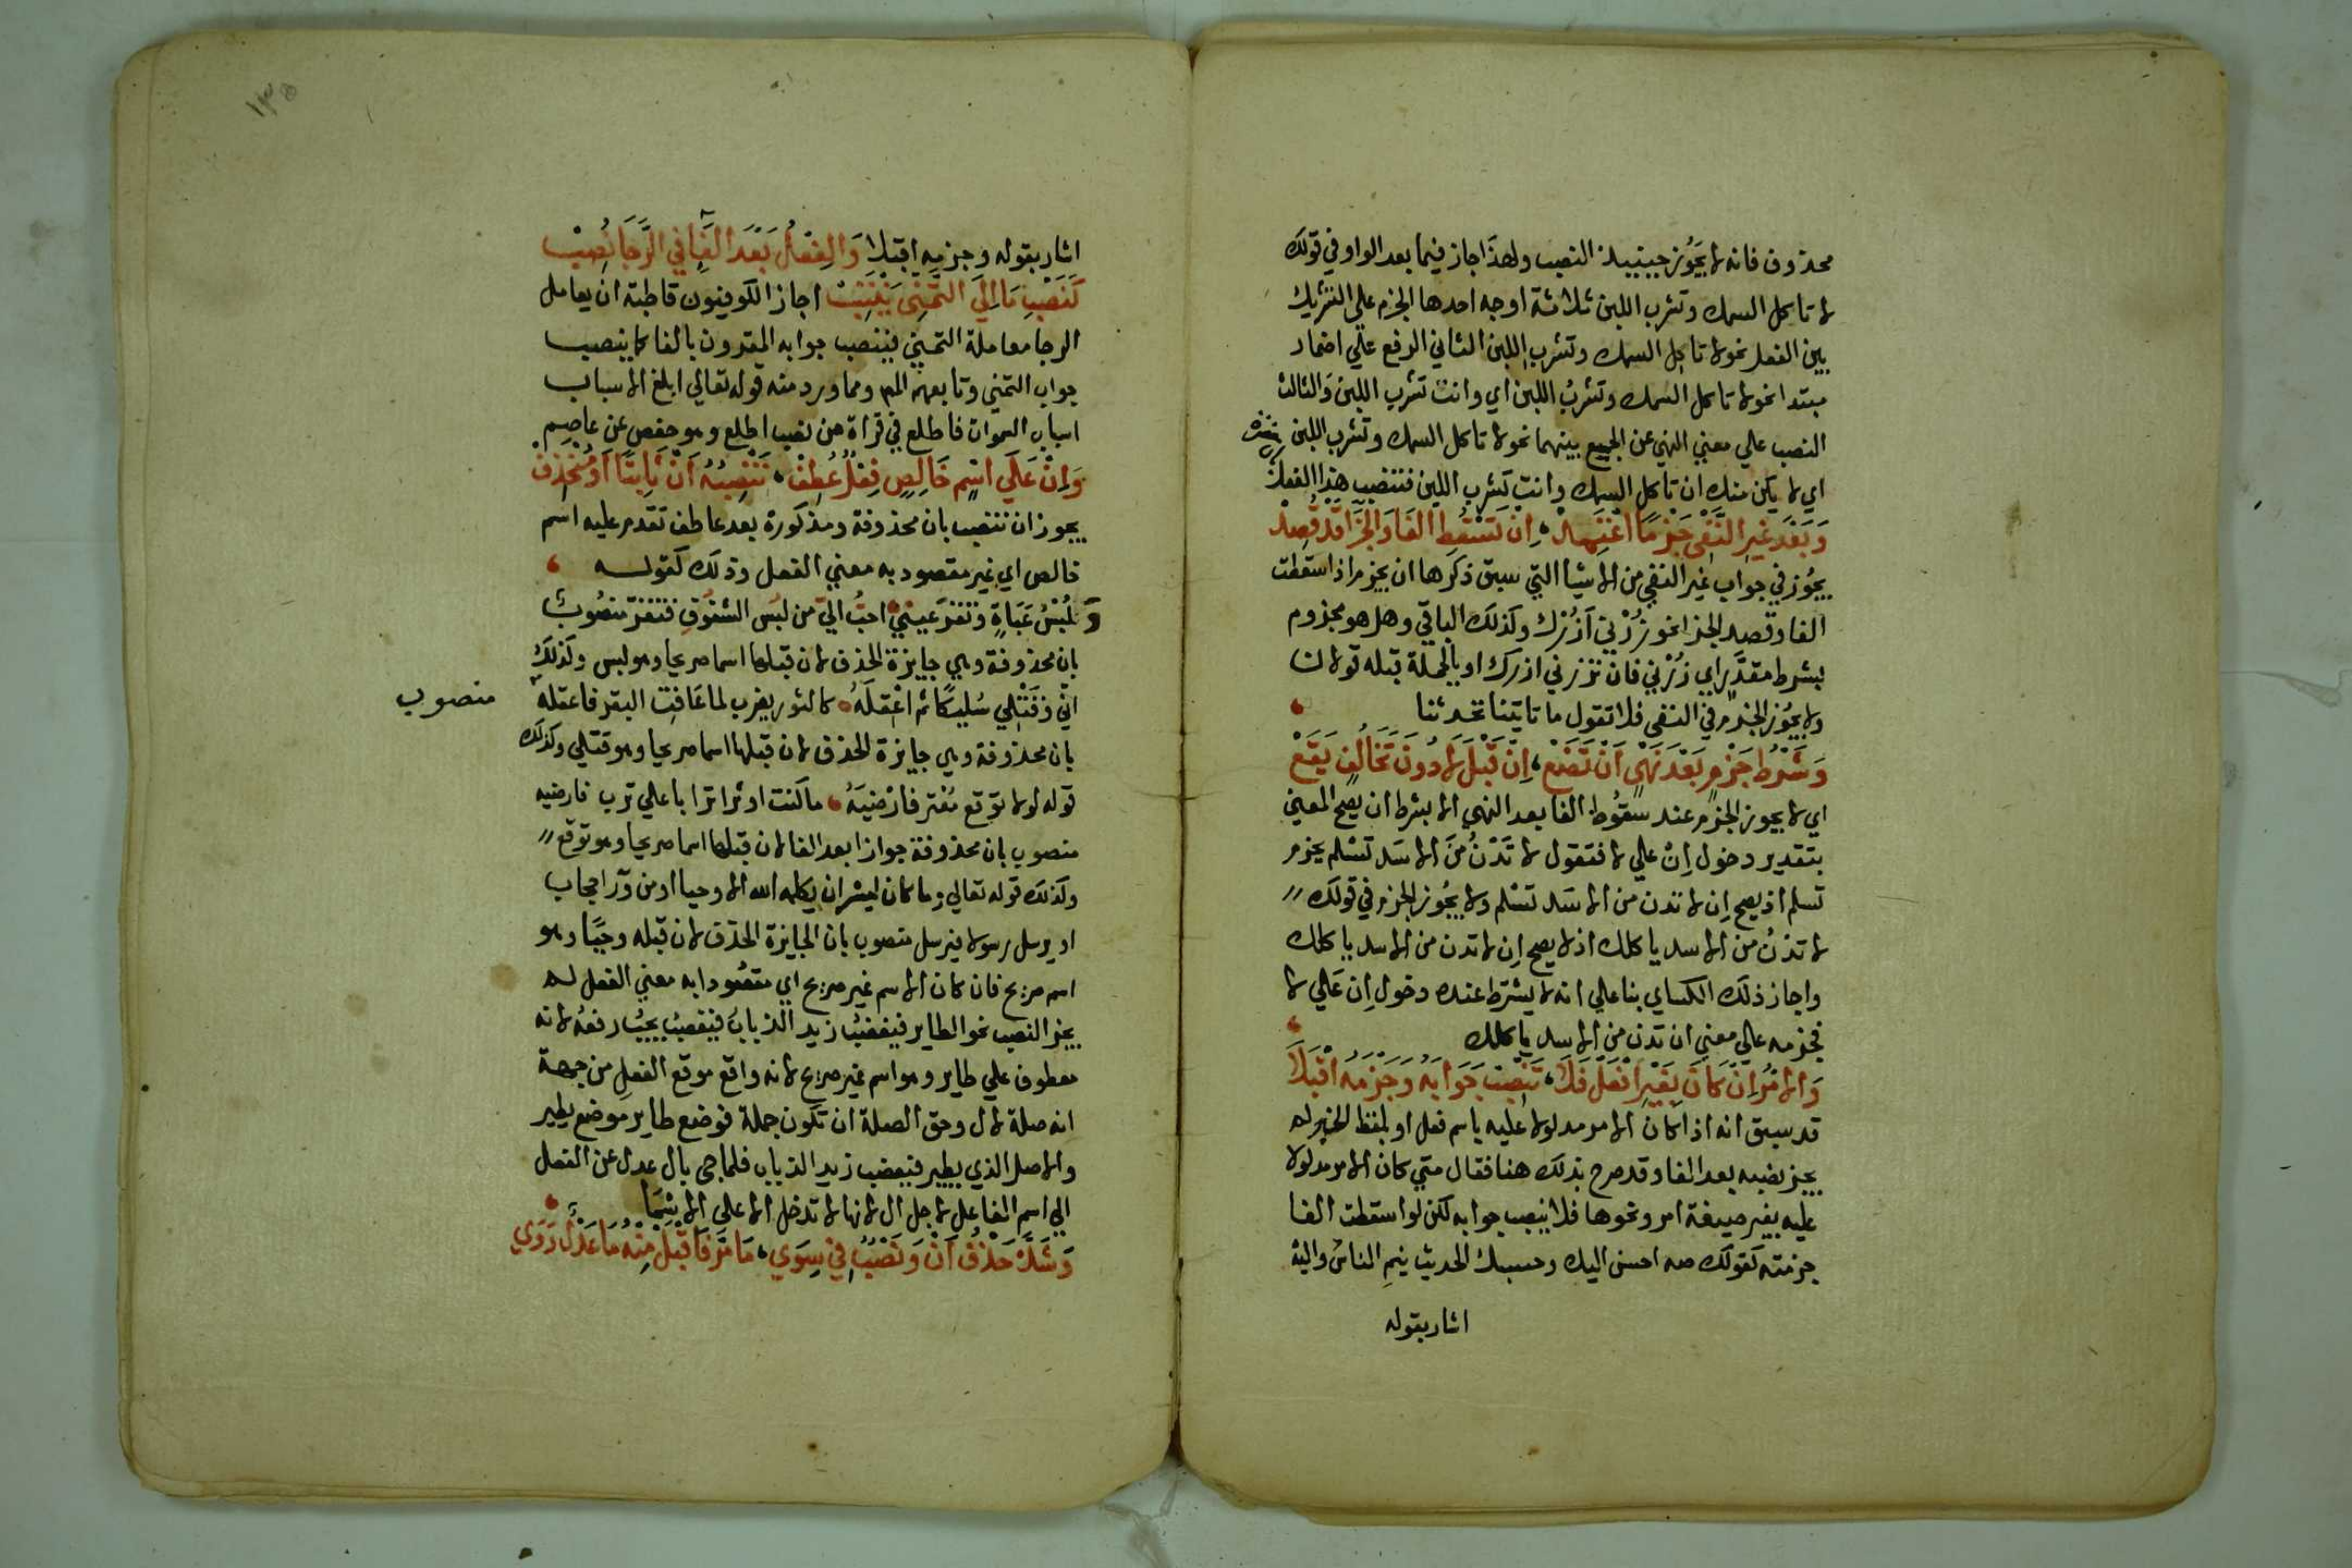 محذوف فانه لا يَجُوز حينييذ النصب ولهذا جاز فيما بعد الواو في قولك
لا تاكل السمك وتشرب اللبن ثلاثة اوجه احدها الجزم علي التشريك
بين الفعل نحو لا تاكل السمك وتشرب اللبن الثاني الرفع علي اضمار
مبتدا نحو لا تاكل السمك وتشربُ اللبن اي وانت تشرب اللبن وَالثالث
النصب علي معني النهي عن الجميع بينهما نحو لا تاكل السمك وتشرب اللبن
اي لا يكن منك ان تاكل السمك وانت تشرب اللبن فتنصب هذا الفعل
وَبَعْدَ غَيرِ النَّفْي جَزْمًا اعْتَمِدْ، اِنْ تَسْقُطِ الفَا وَالجَزَا قَدْ قُصِدْ
يجُوز في جواب غير النفي من الاشيا التي سبق ذكرها ان يجزم اذا سقطت
الفا وقصد الجزا نحو زُرْني اَزُرْك وكذلك الباقي وهل هو مجزوم
بشرط مقدَّر اي زُرْني فان تزرني ازرك او بالجملة قبله قولان
ولا يجُوز الجزم في النفي فلا تقول ما تاتينا تحدثنا
وَشَرْطُ جَزْمٍ بَعْدَ نَهْيٍ اَنْ تَضَعْ، اِنْ قَبْلَ لا دُونَ تَخَالُفٍ يَقَعْ
اي لا يجوز الجزم عند سقُوط الفا بعد النهي الا بشرط ان يصح المعني
بتقدير دخول اِنْ علي لا فتقول لا تَدْنُ مِنَ الاسَد تسْلم بجزم
تسلم اذ يصح اِن لا تدن من الاسَد تَسْلم ولا يجُوز الجزم في قولك
لا تدْنُ من الاسد ياكلك اذ لا يصح اِن لا تدن من الاسد ياكلك
واجاز ذلك الكساي بنا علي انه لا يشترط عنده دخول اِن عَلي لا
فجزمه علي معني ان تدن من الاسد ياكلك
وَالامْرُ اِنْ كَانَ بِغَيْرِ افْعَلْ فَلا، تَنْصِبْ جَوَابَهُ وَجَزْمَهُ اقْبَلَا
قد سبق انه اذا كان الامر مدلولا عليه باسم فعل او بلفظ الخبر لم
يجز نصبه بعد الفا وقد صرح بذلك هنا فقال متي كان الامر مدلولا
عليه بغير صيغة امر ونحوها فلا ينصب جوابه لكن لو اسقطت الفا
جزمته كقولك صه احسن اليك وحسبك الحديث ينمِ الناسُ واليه
اشار بقوله
اشار بقوله وجزمه اقبلا وَالفِعْلُ بَعْدَ الفَاءِ في الرَّجَا نُصِبْ
كَنَصْبِ مَا اِلَي التَّمَنِّي يَنْتَسِبْ اجاز الكوفيون قاطبة ان يعامل
الرجا معاملة التمني فينصب جوابه المقرون بالفا كما ينصب
جواب التمني وتابعهم المص ومما ورد منه قوله تعالي ابلغ الاسباب
اسباب السموات فاطلع في قراة من نصب اطلع وهو حفص عن عاصِم
وَاِنْ عَلَي اسْمٍ خَالِصٍ فِعْلٌ عُطِفْ، تَنْصِبُهُ اَنْ ثَابِتًا اَوْ مُنْحَذِفْ
يجوز ان تنصب بان محذوفة ومذكورة بعد عاطف تقدم عليه اسم
خالص اي غير مقصود به معني الفعل وذلك كقوله
وَلُبْسُ عَبَاءةٍ وَتقرَّ عيني احبُّ اليَّ من لبس الشُفوفِ فتقرَّ منصُوبٌ
بان محذوفة وهي جايزة الحذف لان قبلها اسما صريحا وهو لبس وكذلك
انّي وَقَتْلي سُليكًا ثم اعْقلَهُ كالثور يضرب لما عَافَت البقر فاعقله
منصوب
بان محذوفة وهي جايزة الحذف لان قبلها اسما صريحا وهو قتلي وكذلك
قوله لولا توَقع مُعْترٍ فارْضيَهُ ما كنت اوثر اترابا علي ترب فارضيه
منصوب بان محذوفة جوازا بعد الفا لان قبلها اسما صريحا وهو توقع
وكذلك قوله تعالي وما كان لبشر ان يكلمه الله الا وحيا او من ورا حجاب
او يرسل رسولا فيرسل منصوب بان الجايزة الحذف لان قبله وحيًا وهو
اسم صريح فان كان الاسم غير صريح اي مقصُودا به معني الفعل لم
يجز النصب نحو الطاير فيغضبُ زيد الذبابُ فيغضبُ يجبُ رفعهُ لانه
معطوف علي طاير وهو اسم غير صريح لانه واقع موقع الفعلِ من جهة
انه صلة لال وحق الصلة ان تكون جملة فوضع طاير موضع يطير
والاصل الذي يطير فيغضب زيد الذباب فلما جي بال عدل عن الفعل
الي اسم الفاعل لاجل ال لانها لا تدخل الا علي الاسْمَا
وَشَذَّ حَذْفُ اَنْ وَنَصْبٌ في سِوَي، مَا مَرَّ فَاقْبَلْ مِنْهُ مَا عَدْلٌ رَوَي